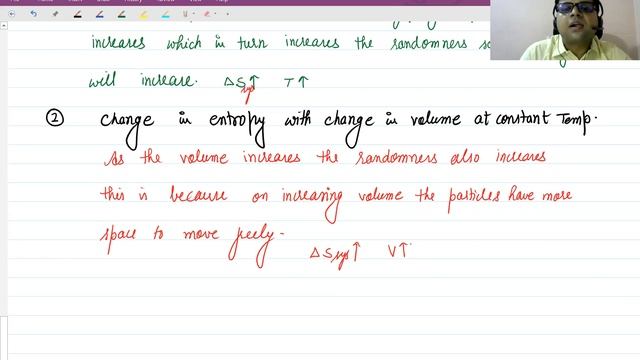 increases which in turn increases the randomness
will increase. ΔSsys↑ T↑
② change in entropy with change in volume at constant Temp.
As the volume increases the randomness also increases
this is because on increasing volume the particles have more
space to move freely.
ΔSsys↑ V↑